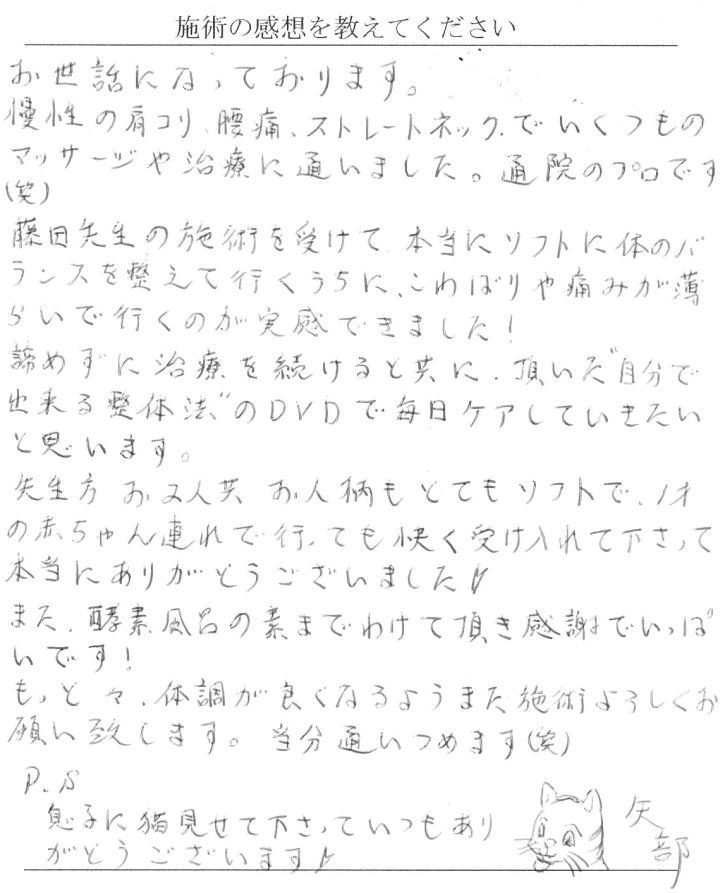 施術の感想を教えてください
お世話になっております。
慢性の肩コリ、腰痛、ストレートネック、でいくつもの
マッサージや治療に通いました。通院のプロです
(笑)
藤田先生の施術を受けて、本当にソフトに体のバ
ランスを整えて行くうちに、こわばりや痛みが薄
らいで行くのが実感できました!
諦めずに治療を続けると共に、頂いた"自分で
出来る整体法"のDVDで毎日ケアしていきたい
と思います。
先生方 お2人共 お人柄もとてもソフトで、1才
の赤ちゃん連れで行っても快く受け入れて下さって
本当にありがとうございました♪
また、酵素風呂の素までわけて頂き感謝でいっぱ
いです!
もっと々、体調が良くなるようまた施術よろしくお
願い致します。当分通いつめます(笑)
P.S
息子に猫見せて下さっていつもあり
がとうございます♪
矢部